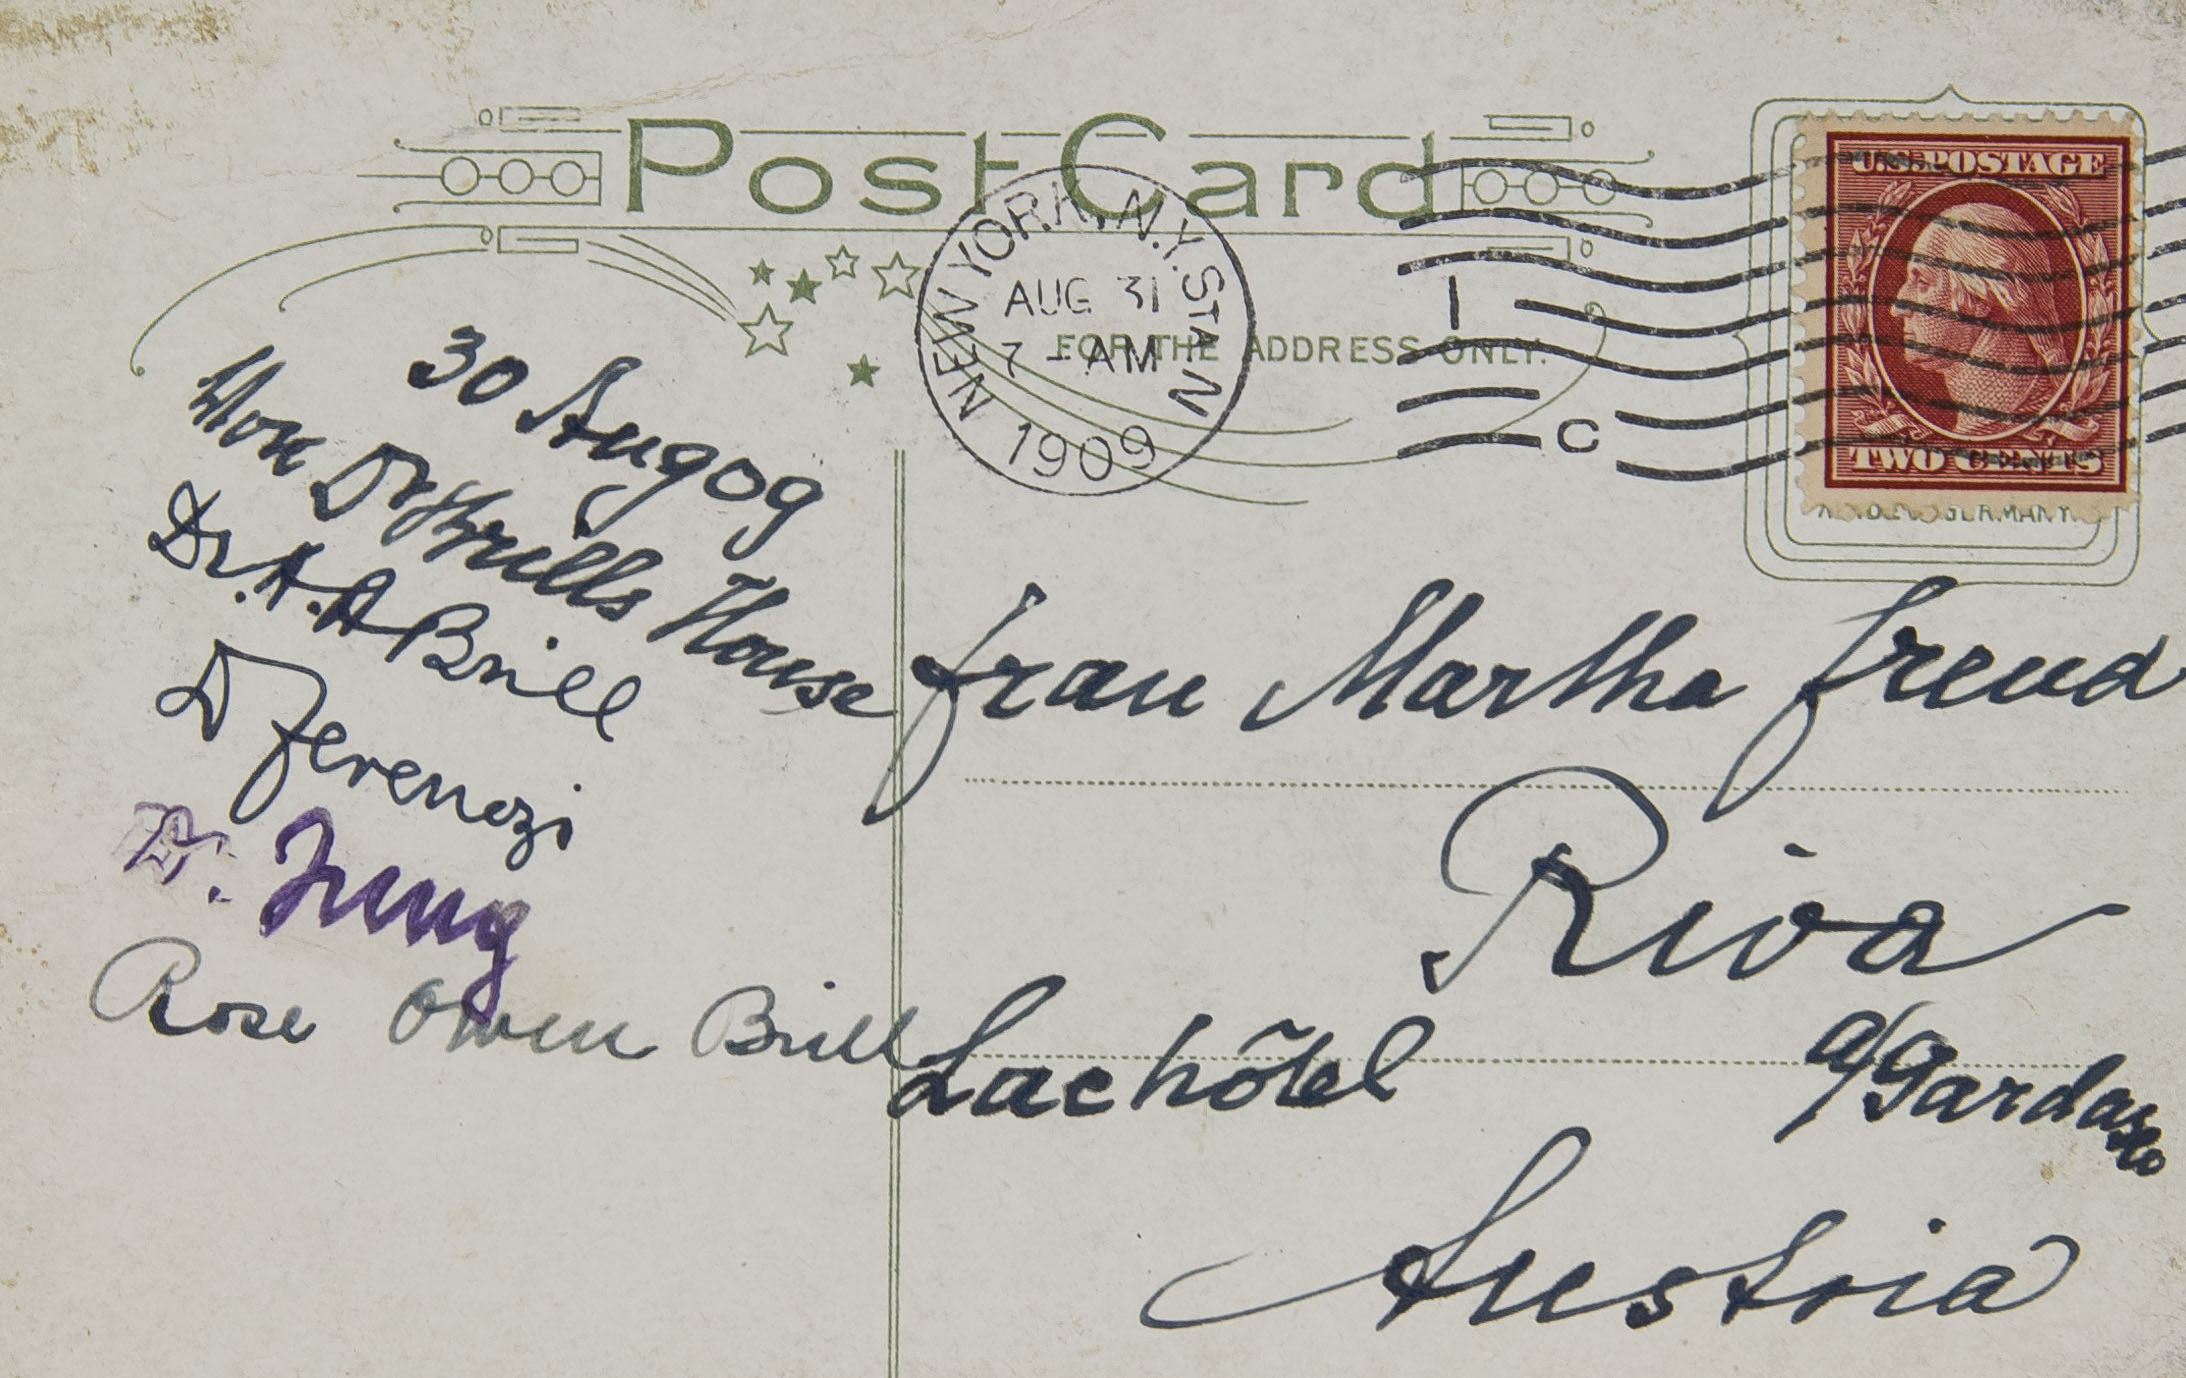 Post Card
NEW YORK, N.Y. STA N
AUG 31
7 - AM
1909
1
C
U.S. POSTAGE
TWO CENTS
FOR THE ADDRESS ONLY.
30 Aug 09
Dr Brills House
Dr. A. A Brill
Dr Ferenczi
Dr. Jung
Rose Owen Brill
Frau Martha Freud
Riva
a/Gardasee
Lac hôtel
Austria